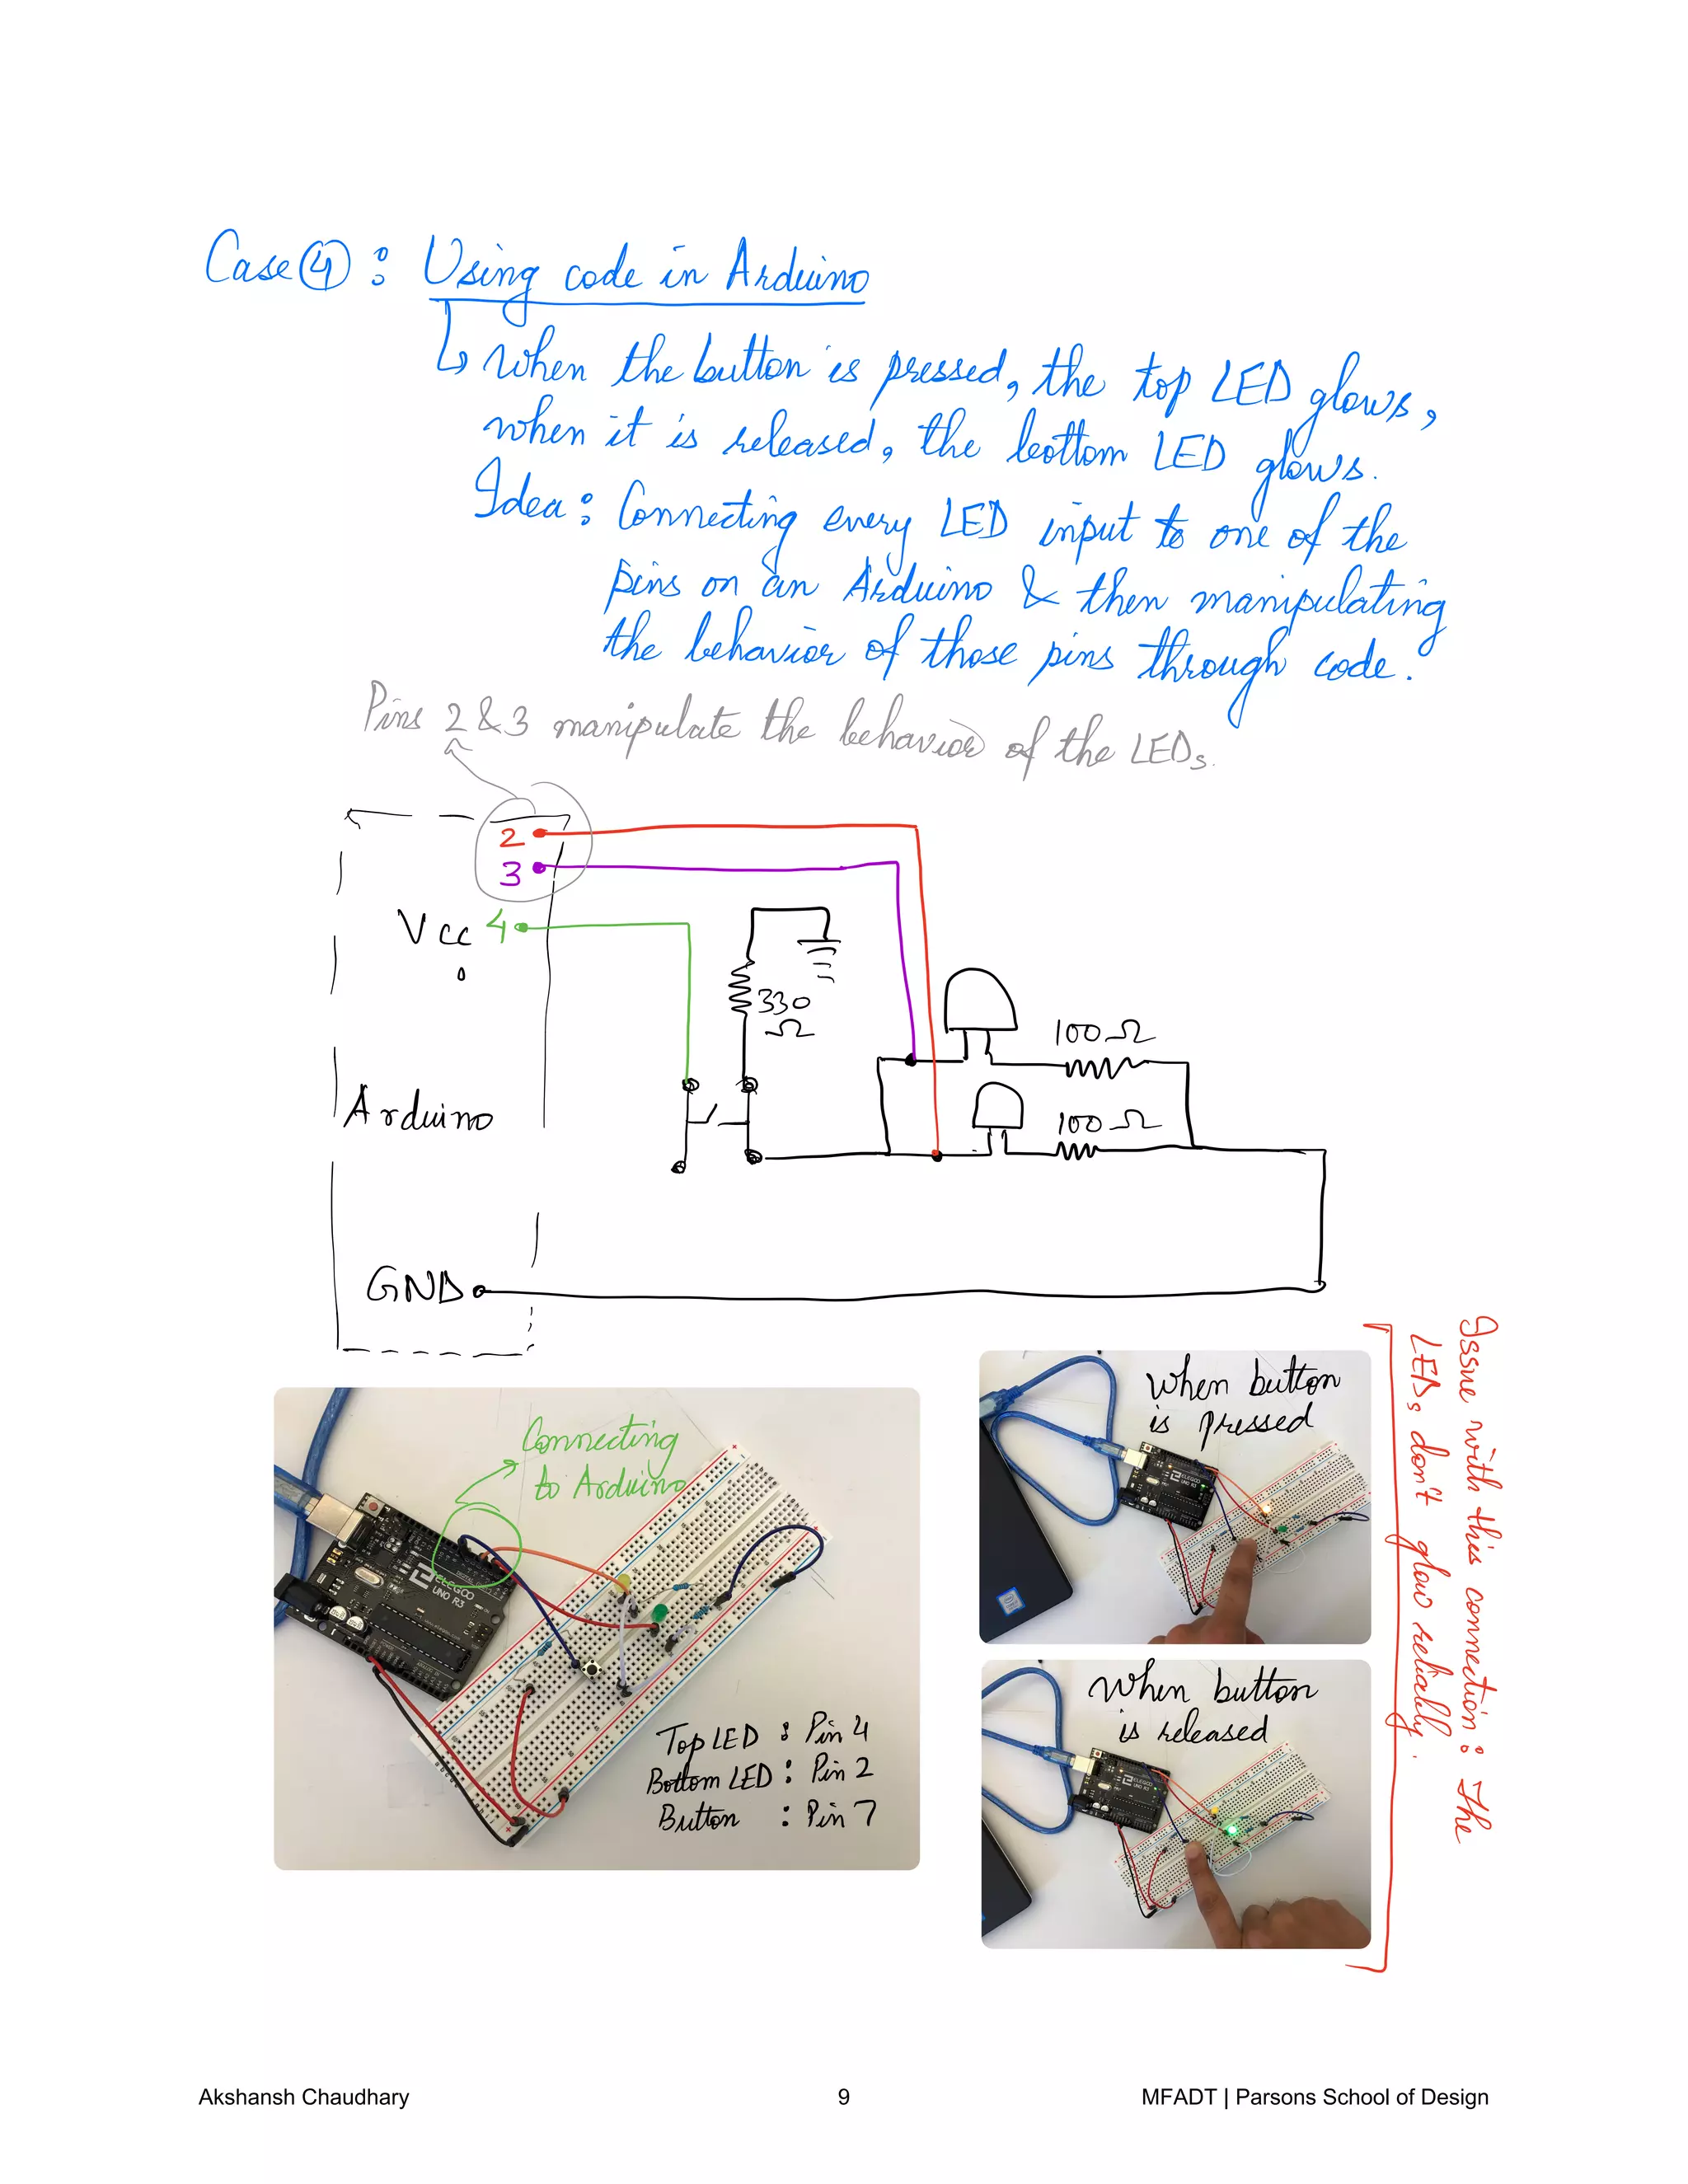 Case ④ : Using code in Arduino
↳ When the button is pressed, the top LED glows,
when it is released, the bottom LED glows.
Idea : Connecting every LED input to one of the
pins on an Arduino & then manipulating
the behavior of those pins through code.
Pins 2 & 3 manipulate the behavior of the LEDs.
2
3
Vcc 4
330
Ω
100 Ω
100 Ω
Arduino
GND
Issue with this connection : The
LEDs don't glow reliably.
When button
is pressed
Connecting
to Arduino
ELEGOO
UNO R3
When button
is released
Top LED : Pin 4
Bottom LED : Pin 2
Button : Pin 7
Akshansh Chaudhary
9
MFADT | Parsons School of Design